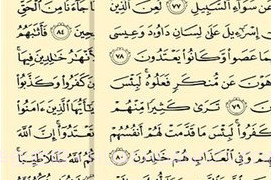 عَن سَوَآءِ ٱلسَّبِيلِ ٧٧ لُعِنَ ٱلَّذِينَ
إِسْرَٰٓءِيلَ عَلَىٰ لِسَانِ دَاوُۥدَ وَعِيسَى
بِمَا عَصَوا۟ وَّكَانُوا۟ يَعْتَدُونَ ٧٨
عَن مُّنكَرٍ فَعَلُوهُ لَبِئْسَ
٧٩ تَرَىٰ كَثِيرًا مِّنْهُمْ
كَفَرُوا۟ لَبِئْسَ مَا قَدَّمَتْ لَهُمْ أَنفُسُهُمْ
وَفِى ٱلْعَذَابِ هُمْ خَٰلِدُونَ ٨٠
جَآءَنَا مِنَ ٱلْحَقِّ
٨٤ فَأَثَٰبَهُمُ
ٱلْأَنْهَٰرُ خَٰلِدِينَ فِيهَا
كَفَرُوا۟ وَكَذَّبُوا۟
يَٰٓأَيُّهَا ٱلَّذِينَ ءَامَنُوا۟
تَعْتَدُوٓا۟ إِنَّ ٱللَّهَ
ٱللَّهُ حَلَٰلًا طَيِّبًا